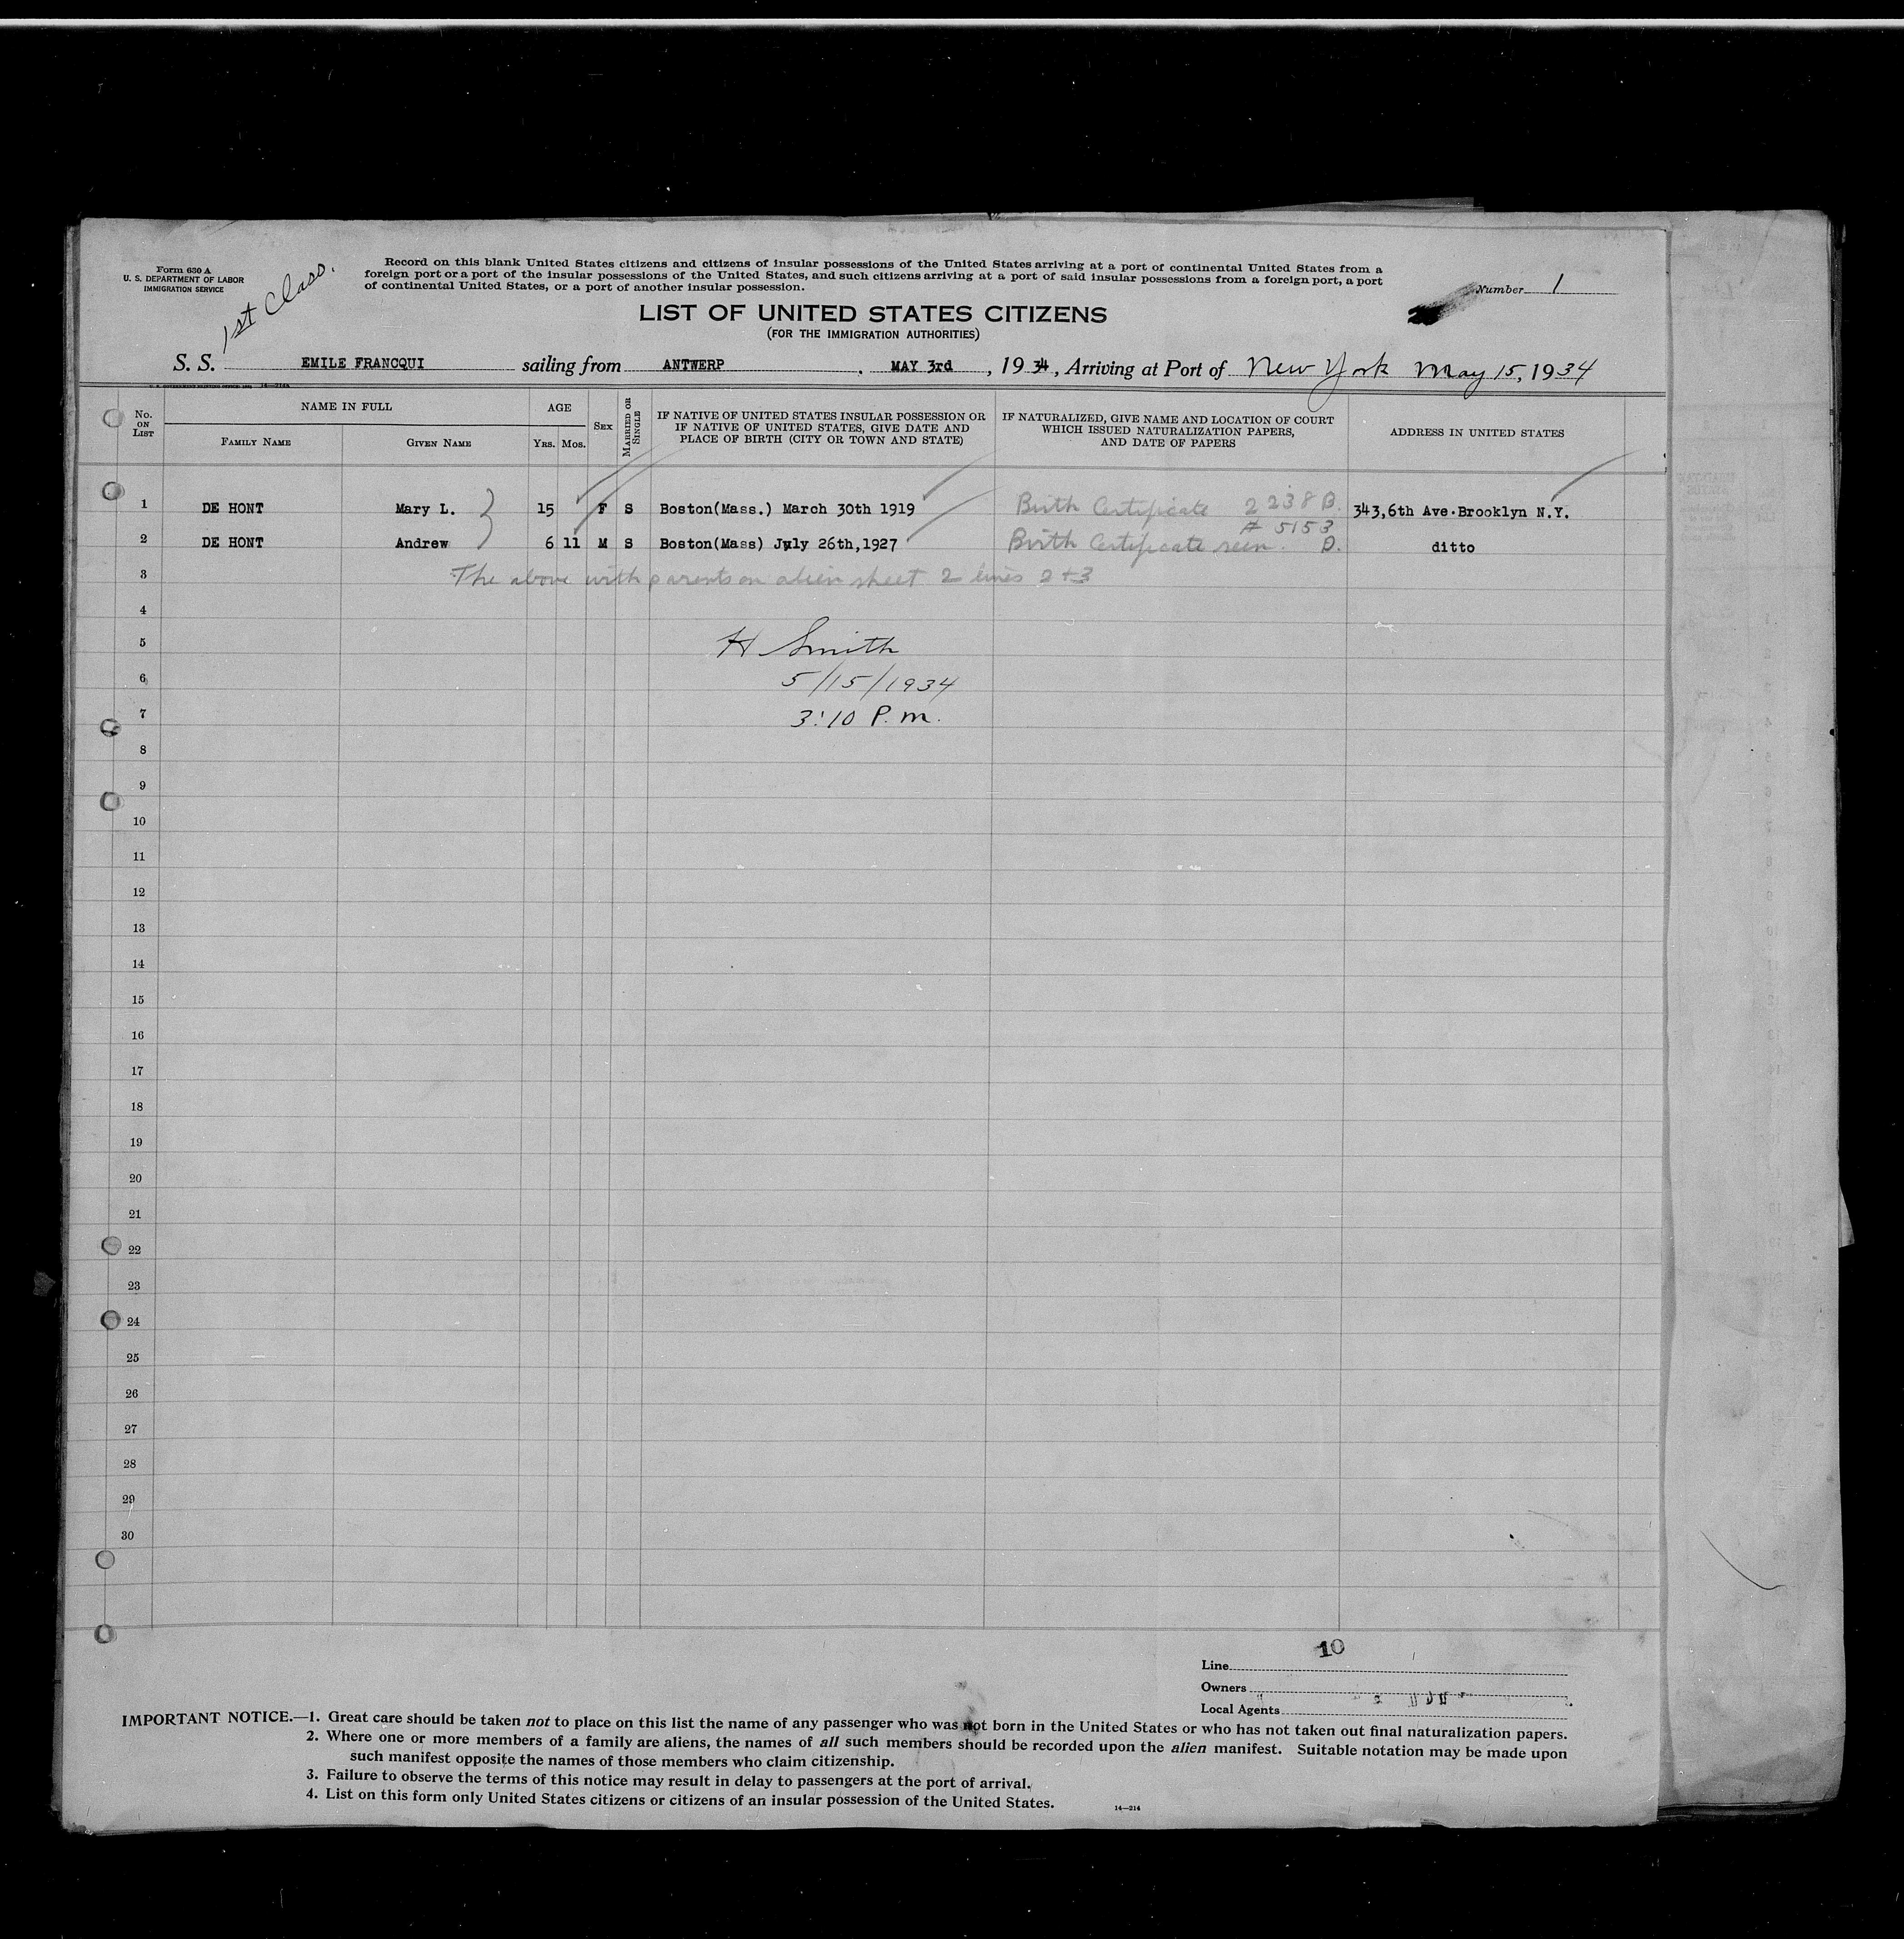 Form 630 A
U. S. DEPARTMENT OF LABOR
IMMIGRATION SERVICE
1st Class.
Record on this blank United States citizens and citizens of insular possessions of the United States arriving at a port of continental United States from a
foreign port or a port of the insular possessions of the United States, and such citizens arriving at a port of said insular possessions from a foreign port, a port
of continental United States, or a port of another insular possession.
Number 1
LIST OF UNITED STATES CITIZENS
(FOR THE IMMIGRATION AUTHORITIES)
S. S. EMILE FRANCQUI sailing from ANTWERP . MAY 3rd , 19 34 , Arriving at Port of New York May 15, 1934
No. ON LIST
NAME IN FULL
FAMILY NAME
GIVEN NAME
AGE
YRS. MOS.
SEX
MARRIED OR SINGLE
IF NATIVE OF UNITED STATES INSULAR POSSESSION OR
IF NATIVE OF UNITED STATES, GIVE DATE AND
PLACE OF BIRTH (CITY OR TOWN AND STATE)
IF NATURALIZED, GIVE NAME AND LOCATION OF COURT
WHICH ISSUED NATURALIZATION PAPERS,
AND DATE OF PAPERS
ADDRESS IN UNITED STATES
1 DE HONT Mary L. 15 F S Boston(Mass.) March 30th 1919 Birth Certificate 2238 B. 343,6th Ave.Brooklyn N.Y.
# 5153
2 DE HONT Andrew 6 11 M S Boston(Mass) July 26th,1927 Birth Certificate seen. B. ditto
3 The above with parents on alien sheet 2 lines 2 + 3
4
5 H Smith
6 5/15/1934
7 3:10 P.m.
8
9
10
11
12
13
14
15
16
17
18
19
20
21
22
23
24
25
26
27
28
29
30
10
Line
Owners
Local Agents
IMPORTANT NOTICE.—1. Great care should be taken not to place on this list the name of any passenger who was not born in the United States or who has not taken out final naturalization papers.
2. Where one or more members of a family are aliens, the names of all such members should be recorded upon the alien manifest. Suitable notation may be made upon
such manifest opposite the names of those members who claim citizenship.
3. Failure to observe the terms of this notice may result in delay to passengers at the port of arrival.
4. List on this form only United States citizens or citizens of an insular possession of the United States.
14—214